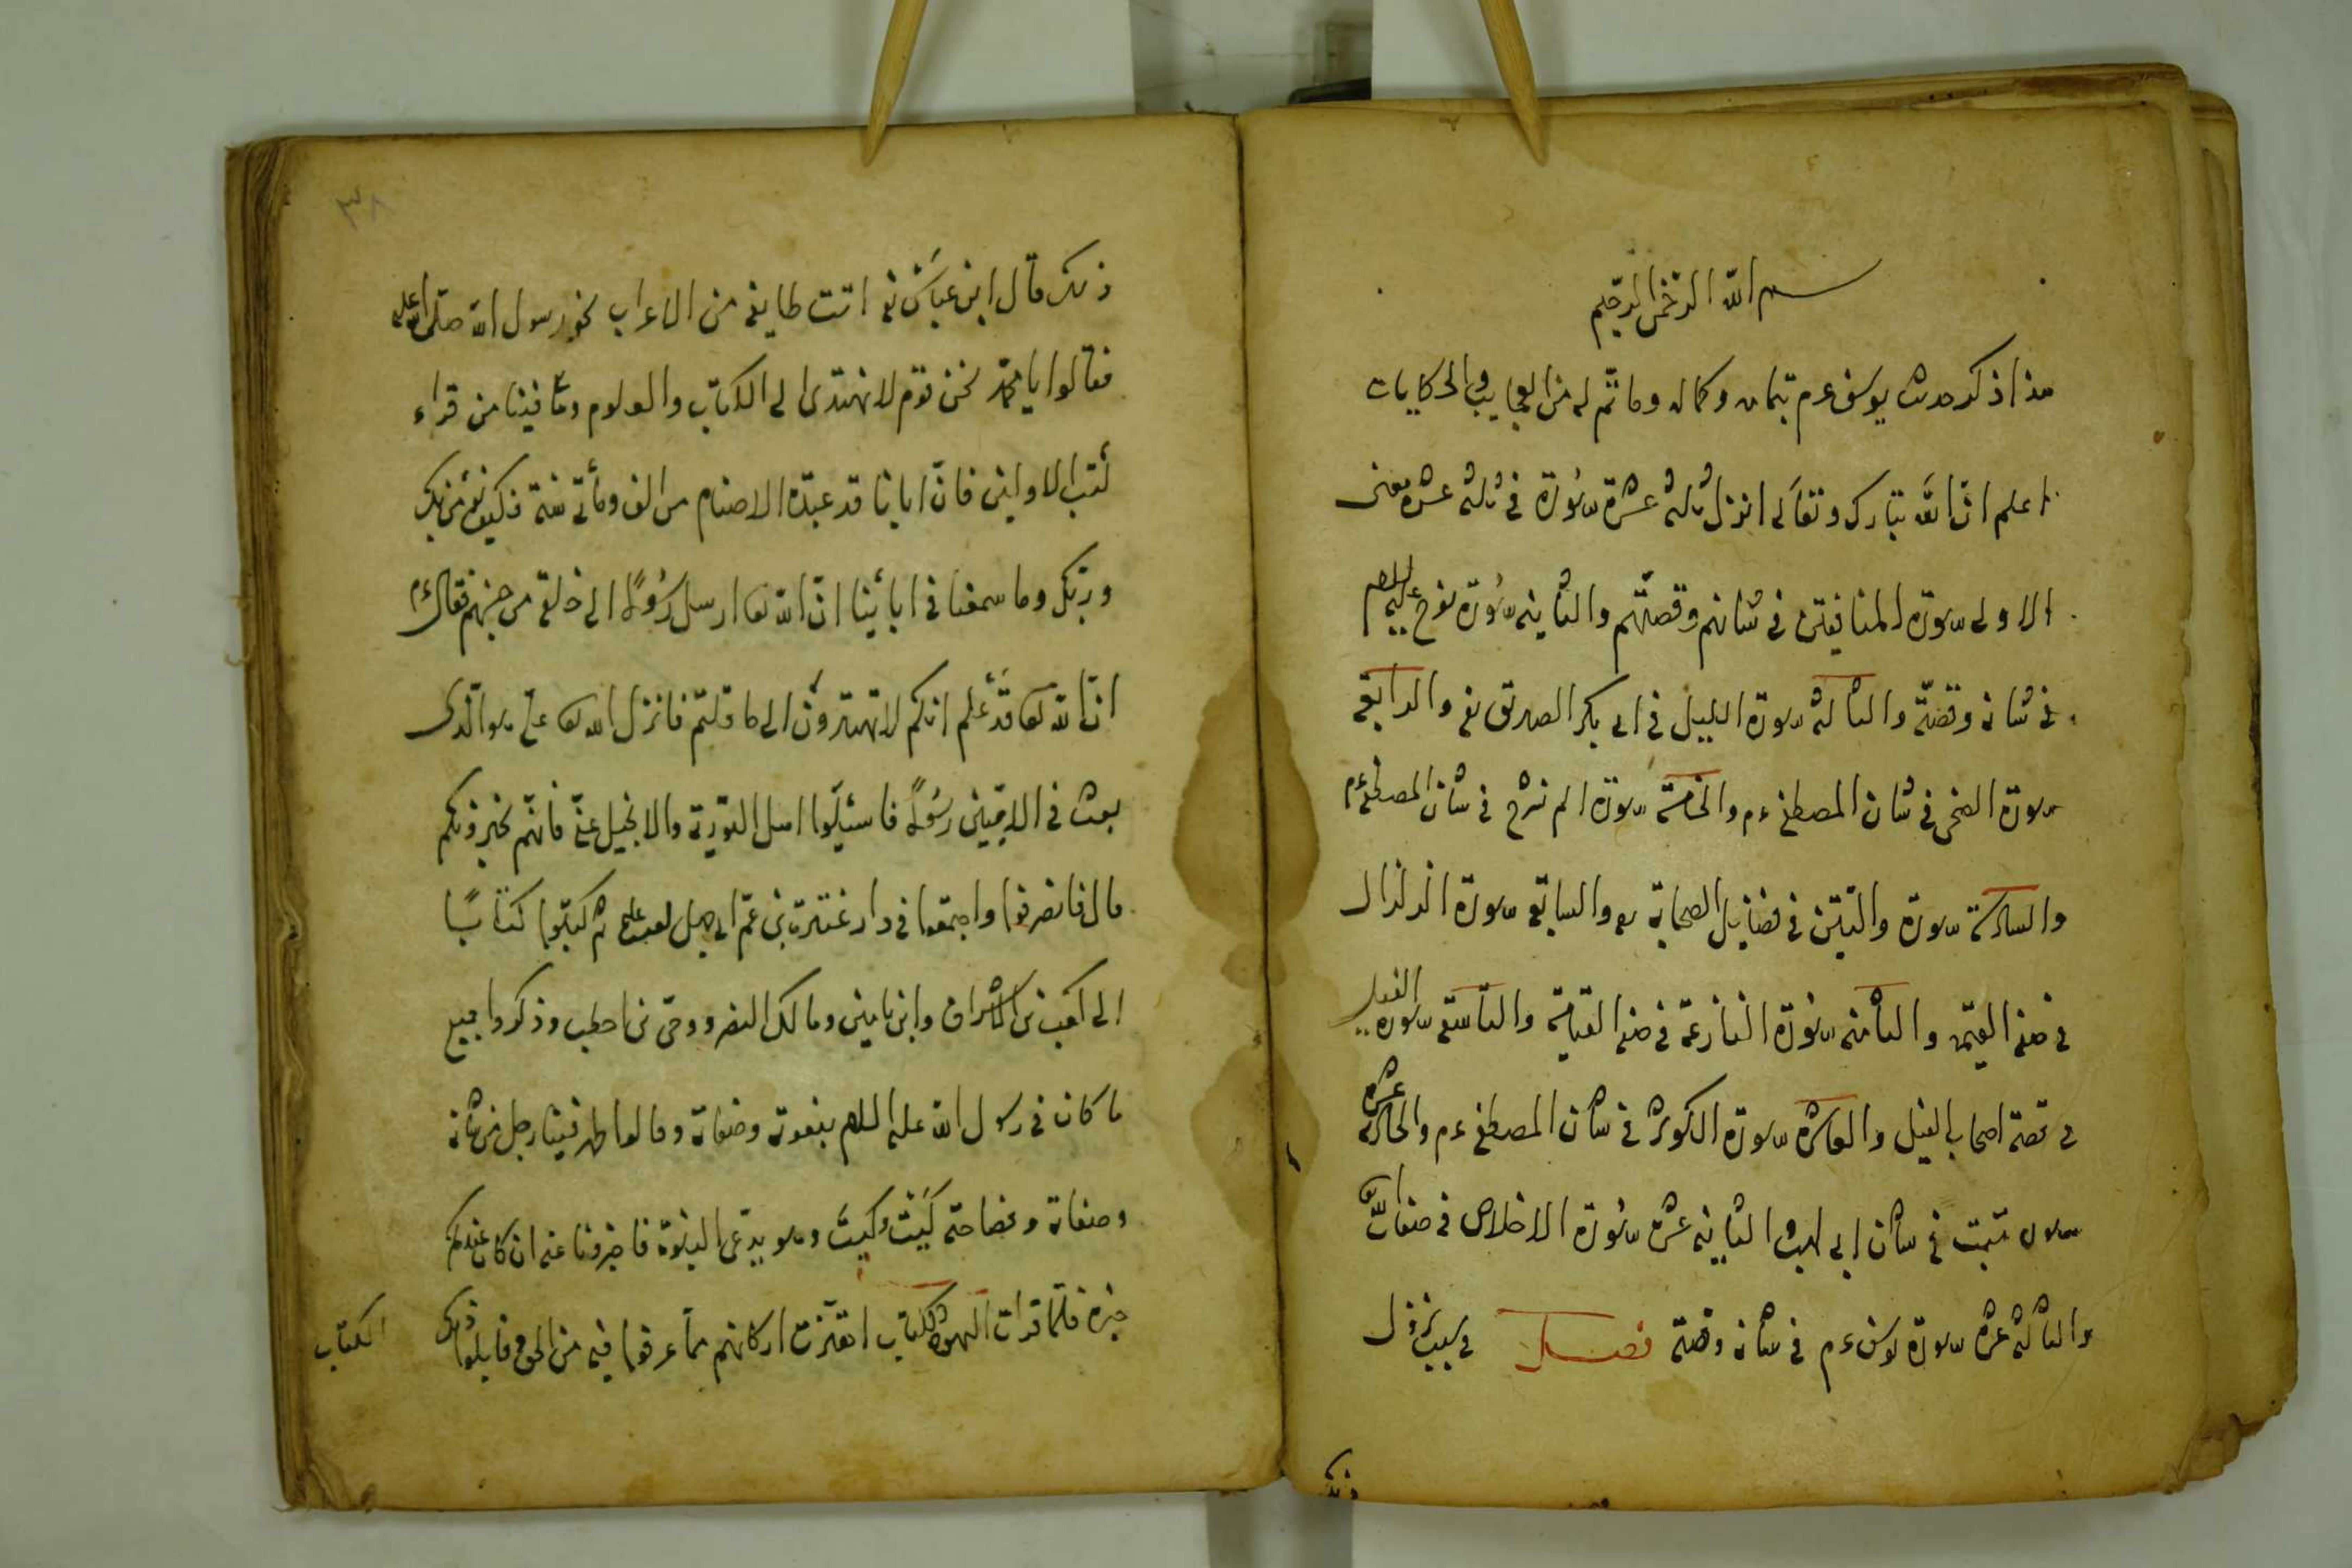 بسم الله الرحمن الرحيم
هذا ذكر حديث يوسف عم بتمامه وكماله وما تم له من العجايب والحكايات
اعلم ان الله تبارك وتعالى انزل ثلثة عشرة سورة في ثلثة عشرة معنى
الاولى سورة المنافقين في شانهم وقصتهم والثانية سورة نوح عليه السلام
في شانه وقصته والثالثة سورة الليل في ابى بكر الصديق رضه والرابعة
سورة الضحى في شان المصطفى عم والخامسة سورة الم نشرح في شان المصطفى عم
والسادسة سورة والتين في فضايل الصحابة والسابعة سورة الزلزال
في صفة القيمة والثامنة سورة القارعة في صفة القيامة والتاسعة سورة الفيل
في قصة اصحاب الفيل والعاشرة سورة الكوثر في شان المصطفى عم والحادية عشرة
سورة تبت في شان ابى لهب والثانية عشرة سورة الاخلاص في صفات الله تعا
والثالثة عشرة سورة يوسف عم في شانه وقصته فصل في سبب نزول
ذلك
٣٨
ذلك قال ابن عباس اتت طايفة من الاعراب نحو رسول الله صلى الله عليه
فقالوا يا محمد نحن قوم لا نهتدى الى الكتاب والعلوم وما فينا من قراء
كتب الاولين فان ابانا قد عبدة الاصنام من الف ومأتى سنة فكيف نؤمن بك
وبربك وما سمعنا في ابائنا ان الله تعا ارسل رسولا الى خلقه من جنسهم فقال عم
ان الله تعا قد علم انكم لا تهتدون الى ما قلتم فانزل الله تعا هو الذى
بعث في الاميين رسولا فاسئلوا اهل التورية والانجيل عنى فانهم يخبرونكم
قال فانصرفوا واجتمعوا في دار بن عم ابى جهل ثم كتبوا كتابا
الى كعب بن الاشراف وابن يامين ومالك وحى بن اخطب وذكروا جميع
ما كان في رسول الله عليه السلام بنعوته وصفاته وقالوا ظهر فينا رجل من شانه
وصفاته وفصاحته كيت وكيت وهو يدعى النبوة فاخبرونا عنه ان كان عندكم
خبره فلما قرات اليهود الكتاب اهتزت اركانهم مما عرفوا فيه من الحق فابلوا ذلك
الكتاب